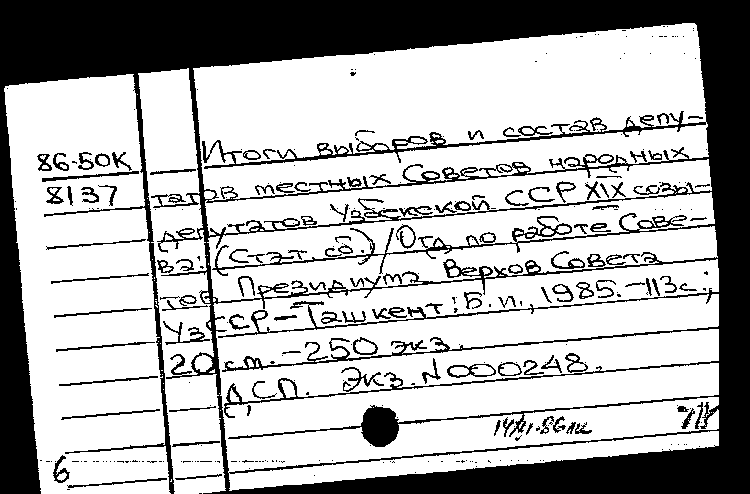 86-50K
8137
Итоги выборов и состав депу-
татов местных Советов народных
депутатов Узбекской ССР XIX созы-
ва: (Стат. сб.) / Отд. по работе Сове-
тов Президиума Верхов. Совета
УзССР. - Ташкент: Б. и., 1985. - 113 с.;
20 см. - 250 экз.
ДСП. Экз. N 000248.
6